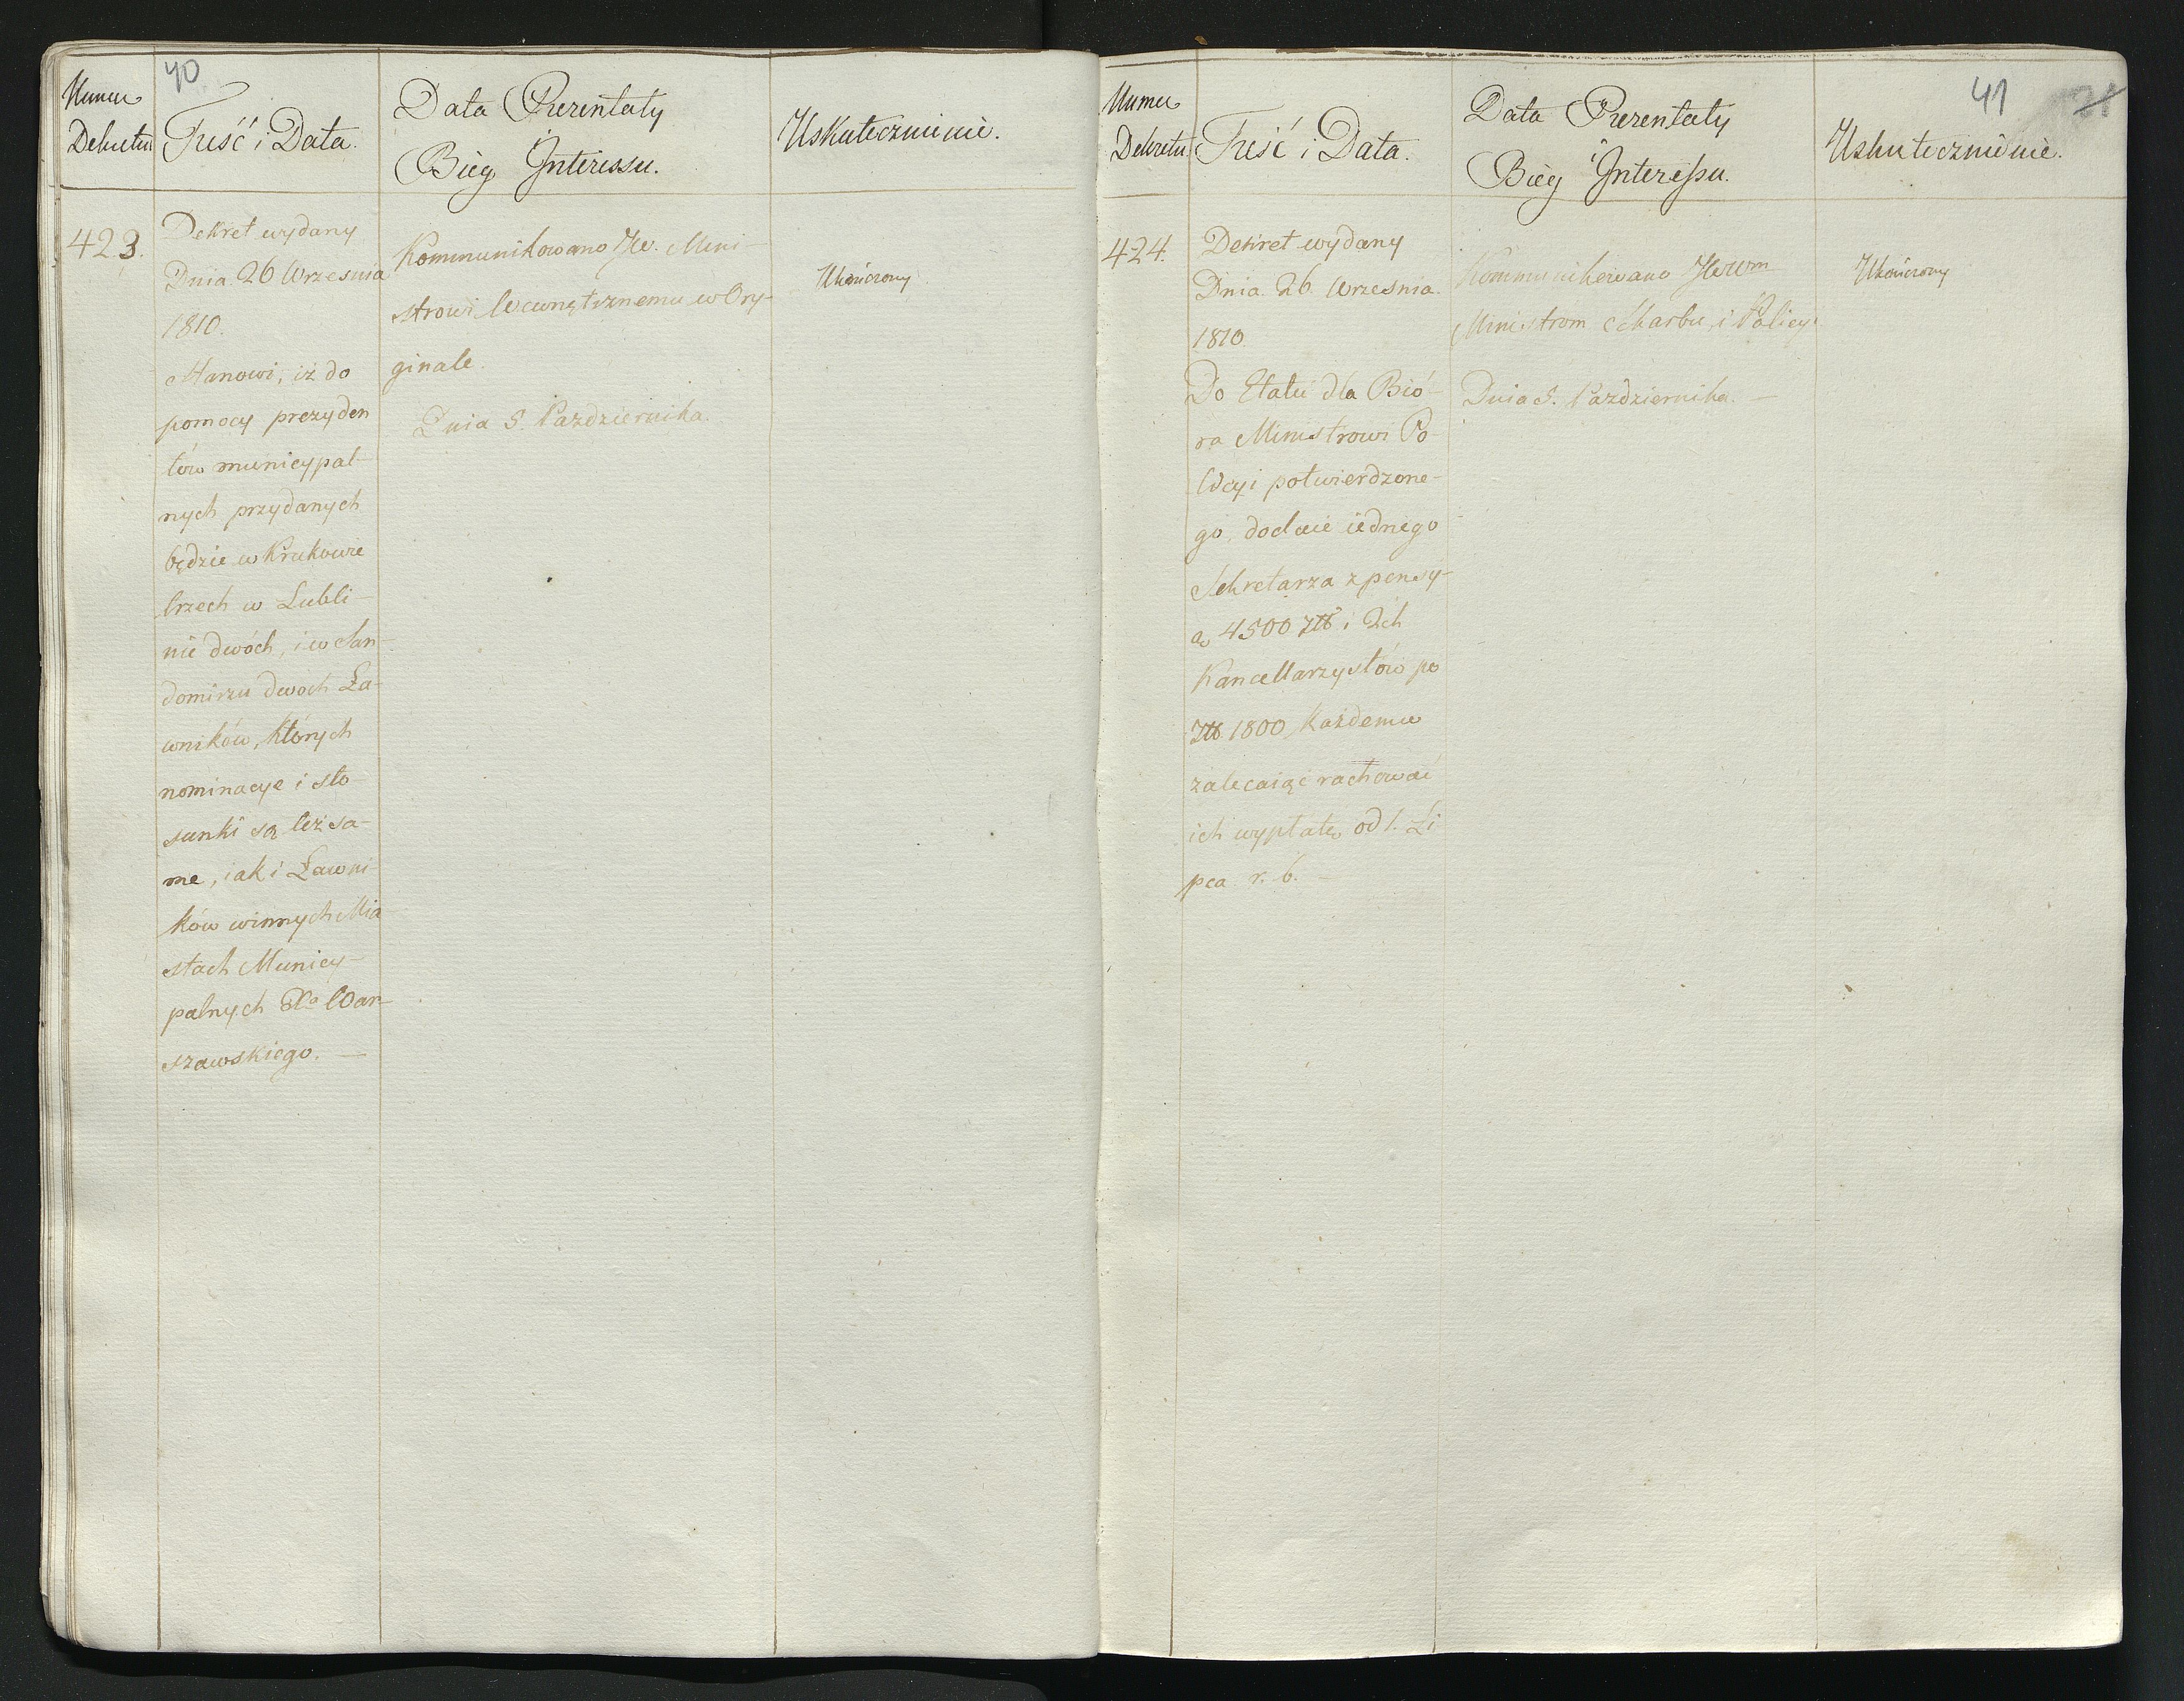 40
Numer
Dekretu
Treść i Data.
Data Prezentaty
i
Bieg Interessu.
Uskutecznienie.
423.
Dekret wydany
Dnia 26 Wrzesnia
1810.
Stanowi, iż do
pomocy prezyden
tów municypal-
nych przydanych
będzie w Krakowie
trzech w Lubli-
nie dwóch, i w San-
domirzu dwoch Ła-
wników, których
nominacye i sto
sunki są też sa-
me, iak i Ławni
ków w innych Mia
stach Municy-
palnych Xa War-
szawskiego. —
Kommunikowano JW. Mini-
strowi Wewnętrznemu w Ory-
ginale.
Dnia 5. Pazdziernika.
Ukończony
41
21
Numer
Dekretu
Treść i Data.
Data Prezentaty
i
Bieg Interessu.
Uskutecznienie.
424.
Dekret wydany
Dnia 26 Wrzesnia.
1810
Do Etatu dla Bió-
ra Ministrowi Po-
licyi potwierdzone-
go, dodaie iednego
Sekretarza z pensy-
ą 4500 Złł i 2ch
Kancellarzystów po
Złł. 1800 każdemu
zalecaiąc rachować
ich wypłatę od 1. Li
pca r. b. —
Kommunikowano JWWm
Ministrom Skarbu, i Policyi
Dnia 5. Pazdziernika. —
Ukończony